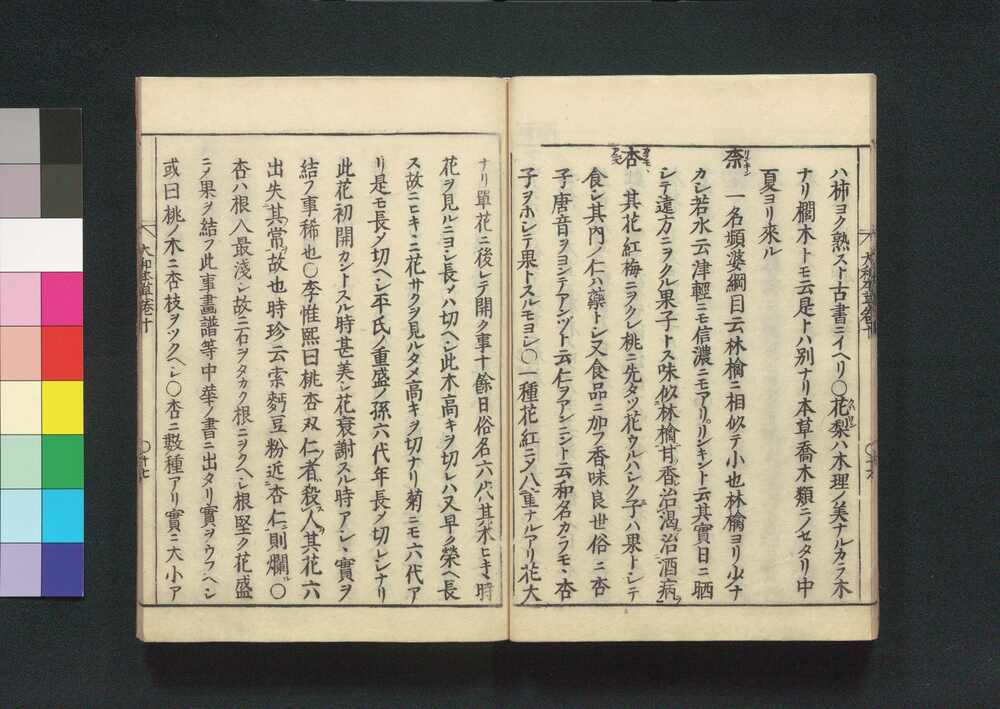 ハ柿ヨク熟スト古書ニイヘリ○花梨ハ木理ノ美ナルカラ木
ナリ櫚木トモ云是トハ別ナリ本草喬木類ニノセタリ中
夏ヨリ來ル
柰 一名頻婆綱目云林檎ニ相似テ小也林檎ヨリ少チ
カシ若水云津輕ニモ信濃ニモアリリンキント云其實日ニ晒
シテ遠方ニヲクル果子トス味似林檎甘香治渇治酒病
杏 其花紅梅ニヲクレ桃ニ先タツ花ウルハシク子ハ果トシテ
食シ其内ノ仁ハ藥トシ又食品ニ加フ香味良世俗ニ杏
子唐音ヲヨンテアンヅト云仁ヲアンニント云和名カラモヽ杏
子ヲホシテ果トスルモヨシ○一種花紅ニメ八重ナルアリ花大
大和本草卷十
ナリ單花ニ後レテ開ク事十餘日俗名六代其木ヒキヽ時
花ヲ見ルニヨシ長メハ切ヘシ此木高キヲ切レハ又早ク榮ヘ長
ス故ニヒキヽニ花サクヲ見ルタメ高キヲ切ナリ菊ニモ六代ア
リ是モ長メ切ヘシ平氏ノ重盛ノ孫六代年長メ切レシナリ
此花初開カントスル時甚美シ花衰謝スル時アシヽ實ヲ
結フ事稀也○李惟熙曰桃杏双仁者殺人其花六
出失其常故也時珍云索麪豆粉近杏仁則爛○
杏ハ根入最淺シ故ニ石ヲタカク根ニヲクヘシ根堅ク花盛
ニメ果ヲ結フ此事畫譜等中華ノ書ニ出タリ實ヲウフヘシ
或曰桃ノ木ニ杏枝ヲツクヘシ○杏ニ數種アリ實ニ大小ア
大和本草卷十
○十七